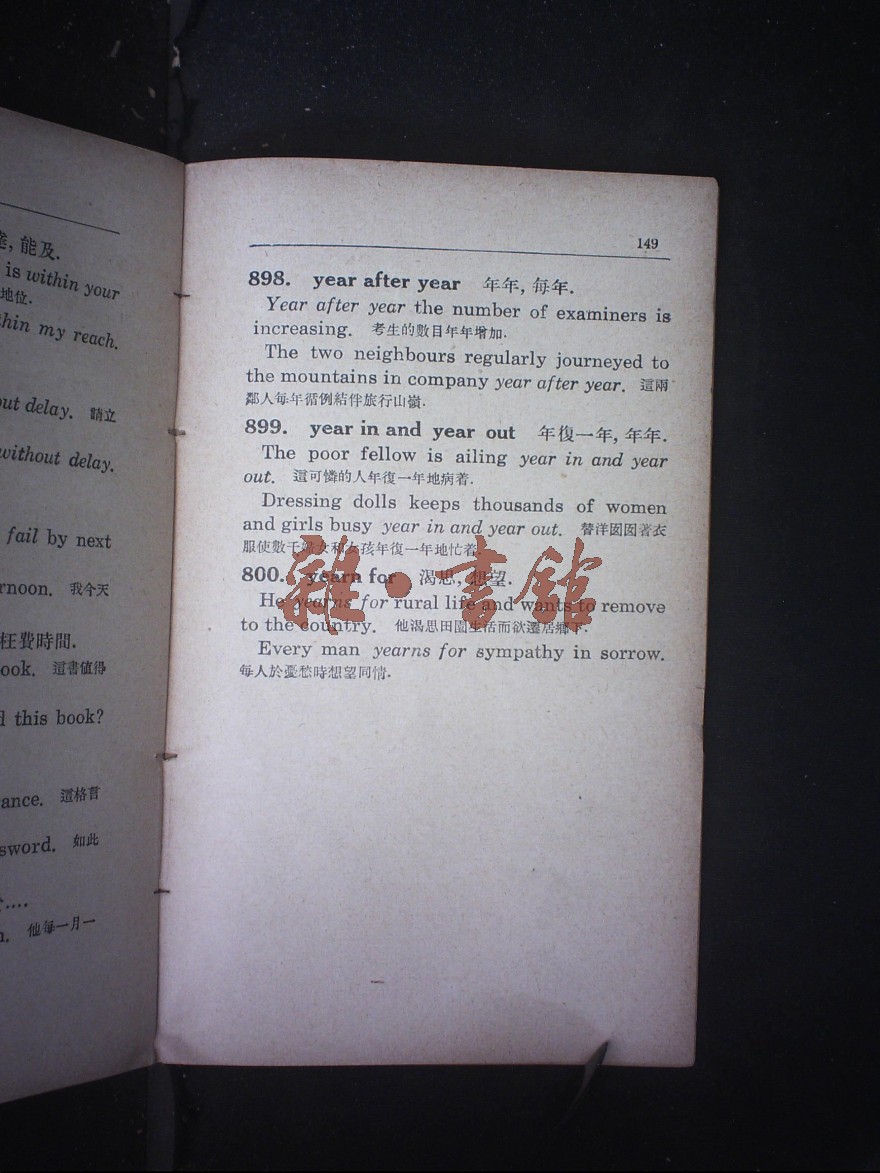 達, 能及.
is within your
地位.
thin my reach.
out delay. 請立
without delay.
fail by next
rnoon. 我今天
枉費時間.
ook. 這書值得
d this book?
ance. 這格言
sword. 如此
....
n. 他每一月一
149
898. year after year 年年, 每年.
Year after year the number of examiners is
increasing. 考生的數目年年增加.
The two neighbours regularly journeyed to
the mountains in company year after year. 這兩
鄰人每年循例結伴旅行山嶺.
899. year in and year out 年復一年, 年年.
The poor fellow is ailing year in and year
out. 這可憐的人年復一年地病着.
Dressing dolls keeps thousands of women
and girls busy year in and year out. 替洋囡囡著衣
服使數千婦女和女孩年復一年地忙着.
800. yearn for 渴思, 想望.
He yearns for rural life and wants to remove
to the country. 他渴思田園生活而欲遷居鄉下.
Every man yearns for sympathy in sorrow.
每人於憂愁時想望同情.
雜·書館